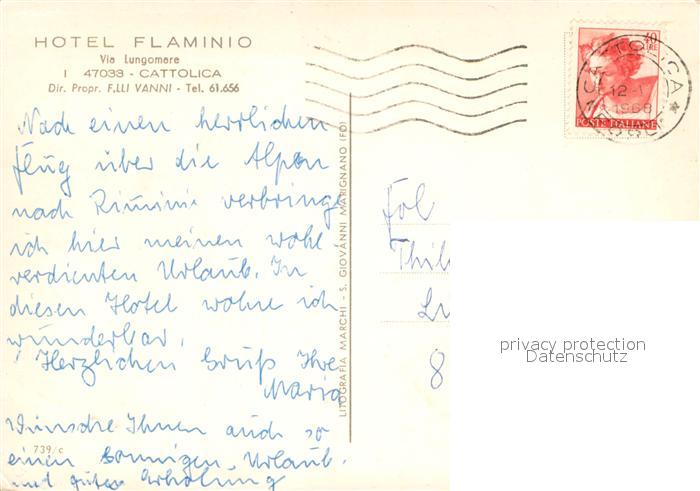 HOTEL FLAMINIO
Via Lungomare
I 47033 - CATTOLICA
Dir. Propr. F.LLI VANNI - Tel. 61.656
Nach einen herrlichen
Flug über die Alpen
nach Rimini verbringe
ich hier meinen wohl-
verdienten Urlaub. In
diesen Hotel wohne ich
wunderbar.
Herzlichen Gruß Ihre
Maria
Wünsche Ihnen auch so
einen sonnigen Urlaub.
und gutes Erholung
739/c
LITOGRAFIA MARCHI - S. GIOVANNI MARIGNANO (FO)
40
LIRE
POSTE ITALIANE
CATTOLICA
12-
1968
8
privacy protection
Datenschutz